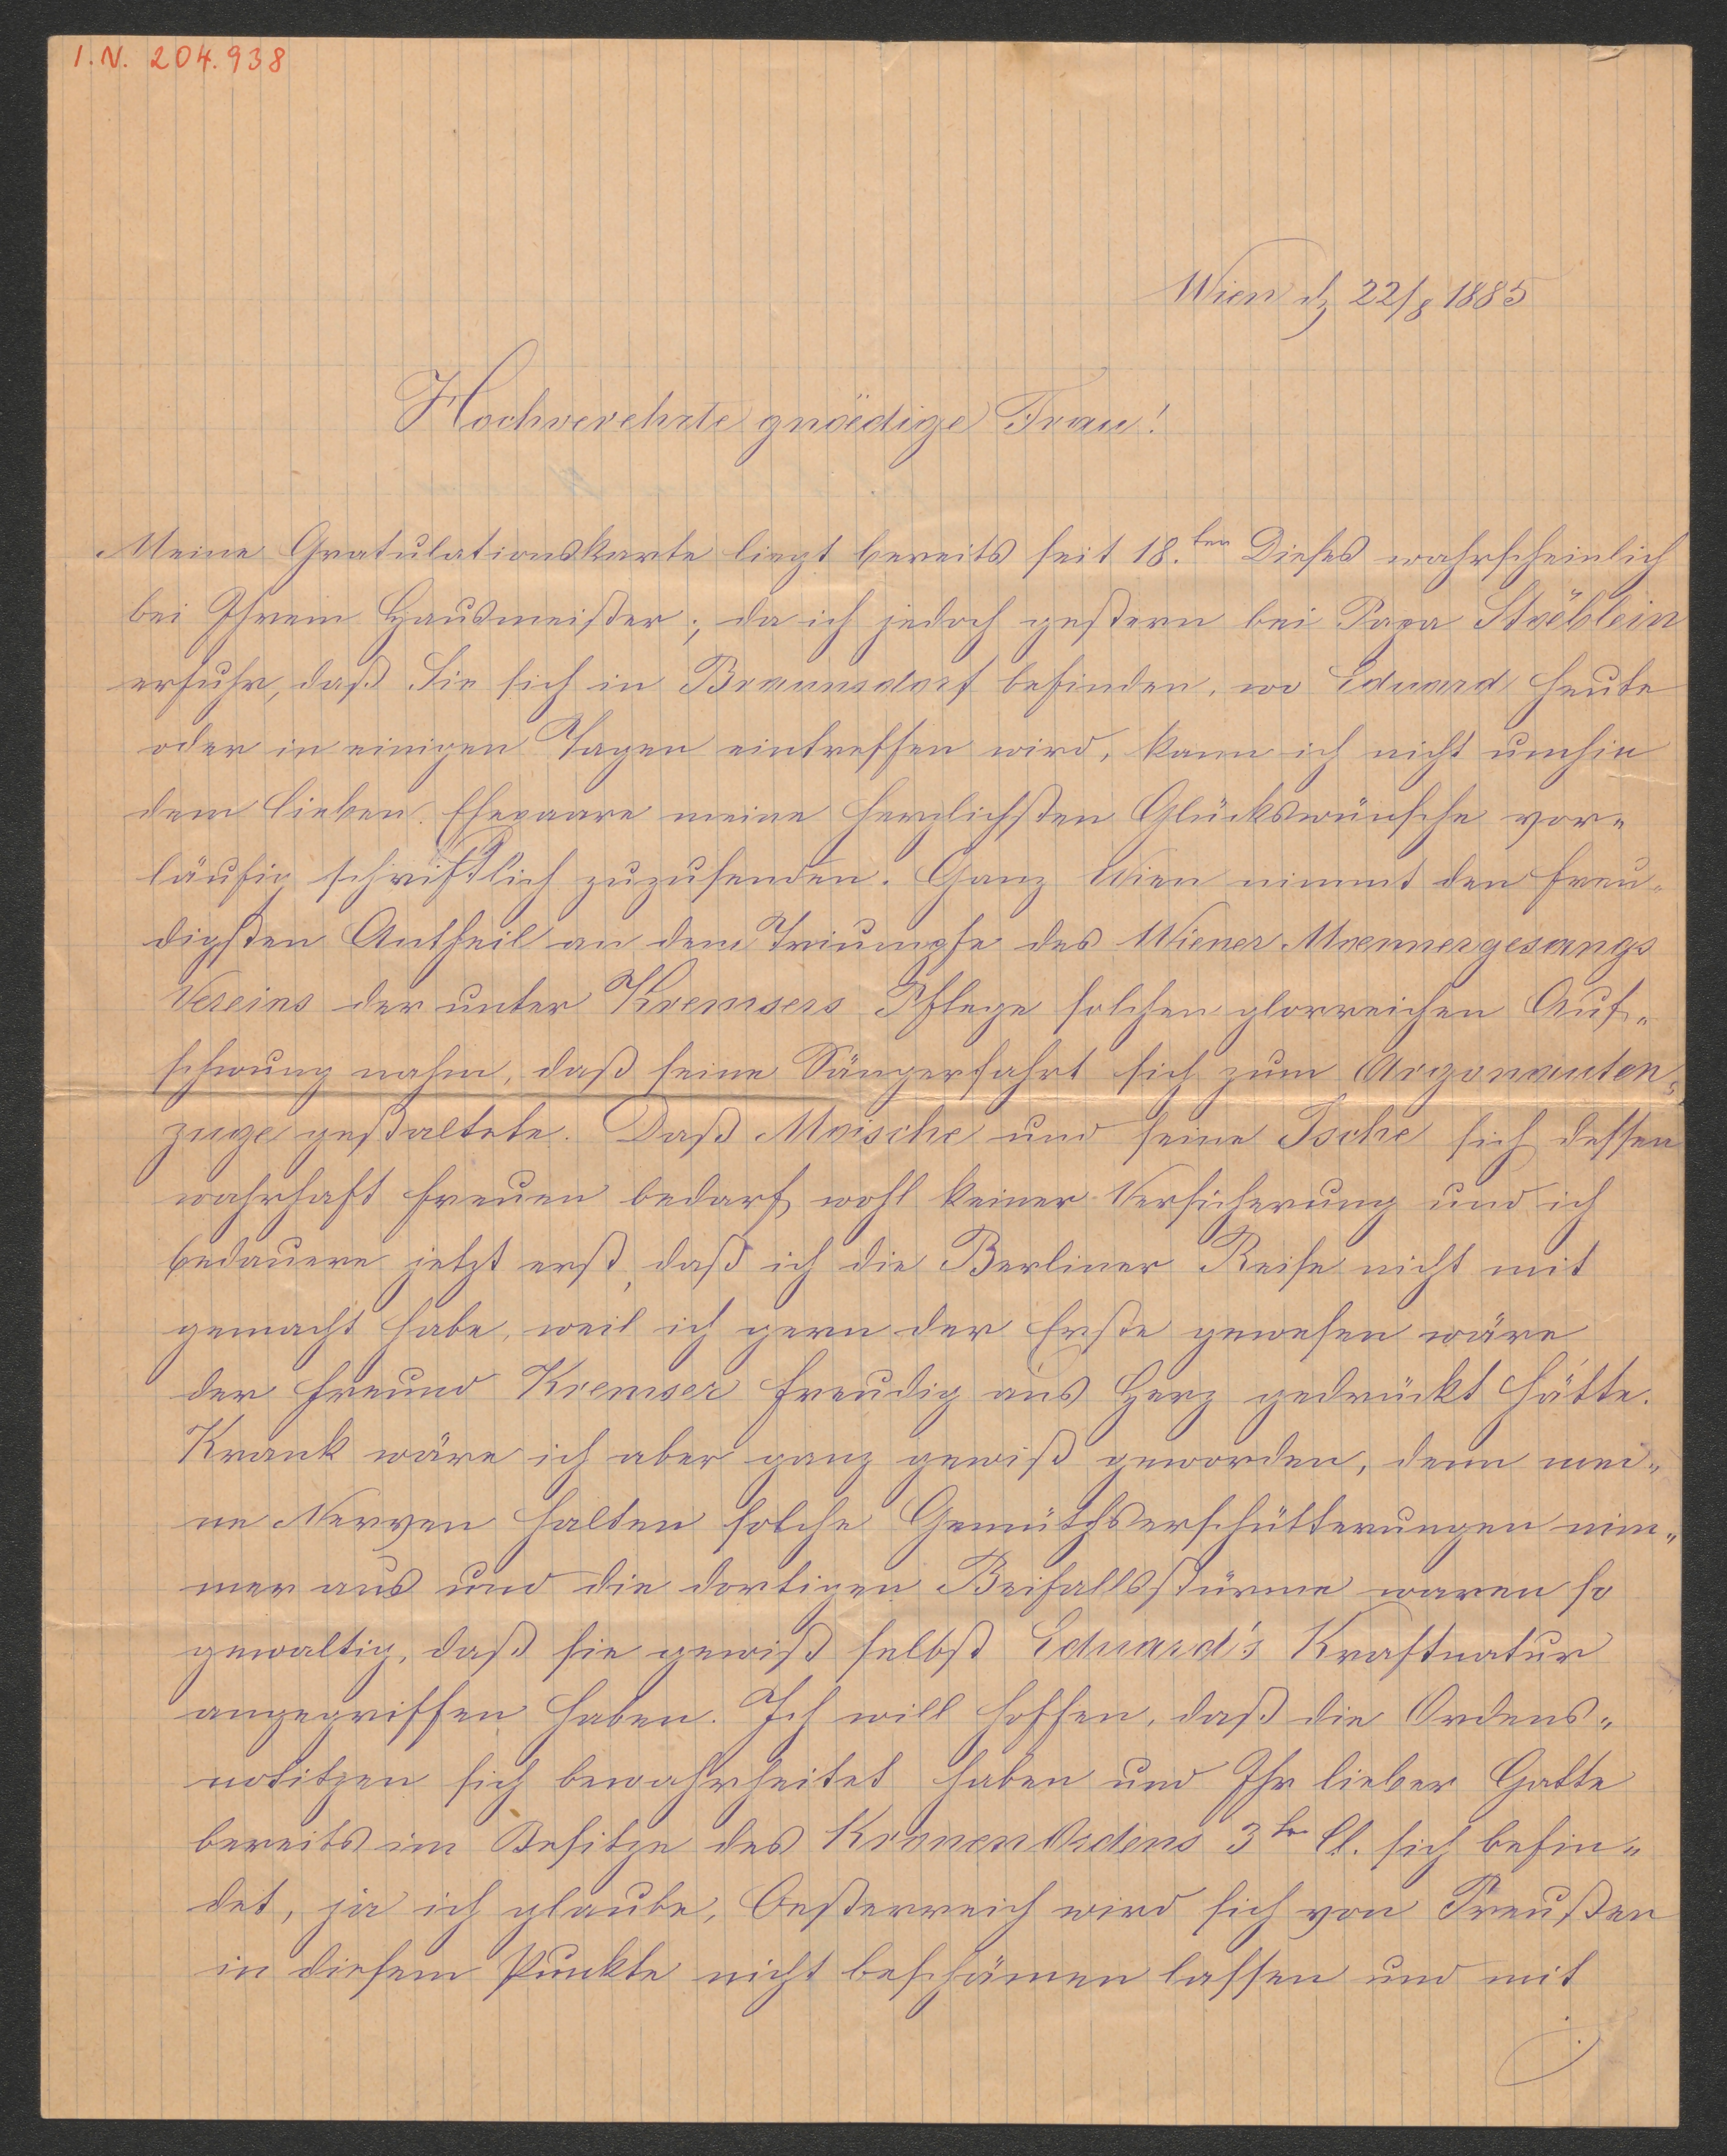 I.N. 204.938
Wien dz 22/8 1885
Hochverehrte gnädige Frau!
Meine Gratulationskarte liegt bereits seit 18.ten Dieses wahrscheinlich
bei Ihrem Hausmeister; da ich jedoch gestern bei Papa Ströblein
erfuhr, daß Sie sich in Braunsdorf befinden, wo Eduard heute
oder in einigen Tagen eintreffen wird, kann ich nicht umhin
dem lieben Ehepaare meine herzlichsten Glückswünsche vor„
läufig schriftlich zuzusenden. Ganz Wien nimmt den freu„
digsten Antheil an dem Triumpfe des Wiener Maennergesangs
Vereins der unter Kremsers Pflege solchen glorreichen Auf„
schwung nahm, daß seine Sängerfahrt sich zum Argonauten„
zuge gestaltete. Daß Moische und seine Ische sich dessen
wahrhaft freuen bedarf wohl keiner Versicherung und ich
bedauere jetzt erst, daß ich die Berliner Reise nicht mit
gemacht habe, weil ich gern der Erste gewesen wäre
der Freund Kremser freudig ans Herz gedrückt hätte.
Krank wäre ich aber ganz gewiß geworden, denn mei„
ne Nerven halten solche Gemüthserschütterungen nim„
mer aus und die dortigen Beifallsstürme waren so
gewaltig, daß sie gewiß selbst Eduard's Kraftnatur
angegriffen haben. Ich will hoffen, daß die Ordens„
notitzen sich bewahrheitet haben und Ihr lieber Gatte
bereits im Besitze des KronenOrdens 3tr Cl. sich befin„
det, ja ich glaube, Oesterreich wird sich von Preußen
in diesem Punkte nicht beschämen lassen und mit